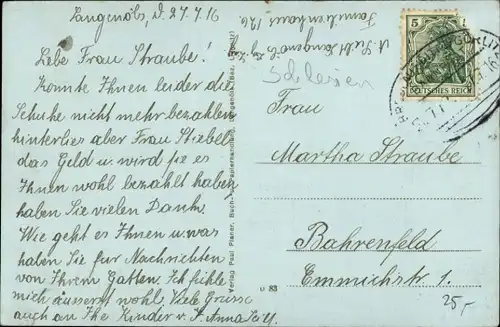 Langenöls, d. 27.7.16
Liebe Frau Straube!
Konnte Ihnen leider die
Schuhe nicht mehr bezahlen
hinterlies aber Frau Stiebel
das Geld u wird sie es
Ihnen wohl bezahlt haben
haben Sie vielen Dank.
Wie geht es Ihnen u. was
haben Sie für Nachrichten
von Ihrem Gatten. Ich fühle
mich äusserst wohl. Viele Grüsse
auch an Ihre Kinder v. Anna
Langenöls
Familienhaus 126.
Schlesien
Verlag Paul Planer, Buch- u. Papierhandlung, Langenöls (Bez. Liegnitz)
5
DEUTSCHES REICH
Frau
Martha Straube
Bahrenfeld
Emmichstr. 1.
83
25,-